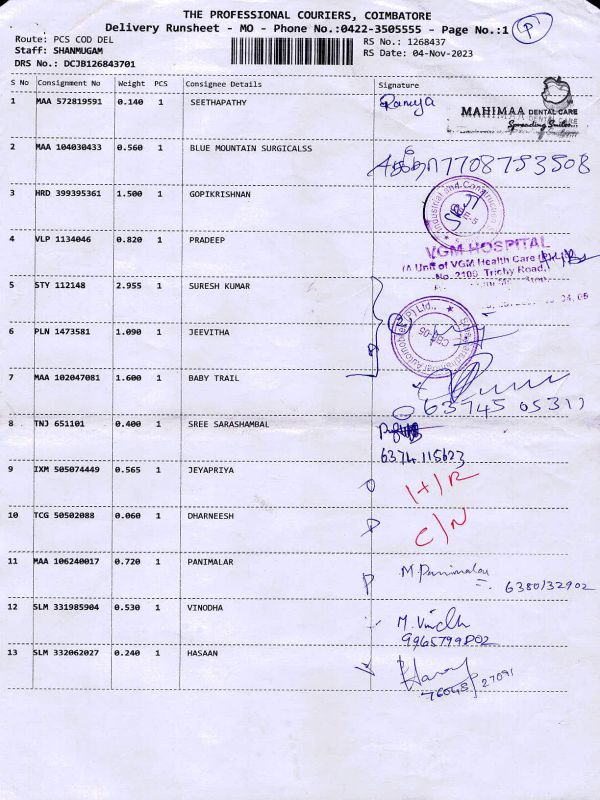 THE PROFESSIONAL COURIERS, COIMBATORE
Delivery Runsheet - MO - Phone No.:0422-3505555 - Page No.:1
P
Route: PCS COD DEL
RS No.: 1268437
Staff: SHANMUGAM
RS Date: 04-Nov-2023
DRS No.: DCJB126843701
S No Consignment No Weight PCS Consignee Details Signature
1 MAA 572819591 0.140 1 SEETHAPATHY Ramya
MAHIMAA DENTAL CARE
Spreading Smiles...
2 MAA 104030433 0.560 1 BLUE MOUNTAIN SURGICALSS
7708753508
3 HRD 399395361 1.500 1 GOPIKRISHNAN
4 VLP 1134046 0.820 1 PRADEEP
VGM HOSPITAL
(A Unit of VGM Health Care (P) Ltd.)
No. 2100, Trichy Road,
5 STY 112148 2.955 1 SURESH KUMAR
6 PLN 1473581 1.090 1 JEEVITHA
CBE-05
7 MAA 102047081 1.600 1 BABY TRAIL
63745 05311
8 TNJ 651101 0.400 1 SREE SARASHAMBAL
6374 115623
9 IXM 505074449 0.565 1 JEYAPRIYA
10 TCG 50502088 0.060 1 DHARNEESH
C/N
11 MAA 106240017 0.720 1 PANIMALAR
P M. Panimalar
6380132902
12 SLM 331985904 0.530 1 VINODHA
9965799802
13 SLM 332062027 0.240 1 HASAAN